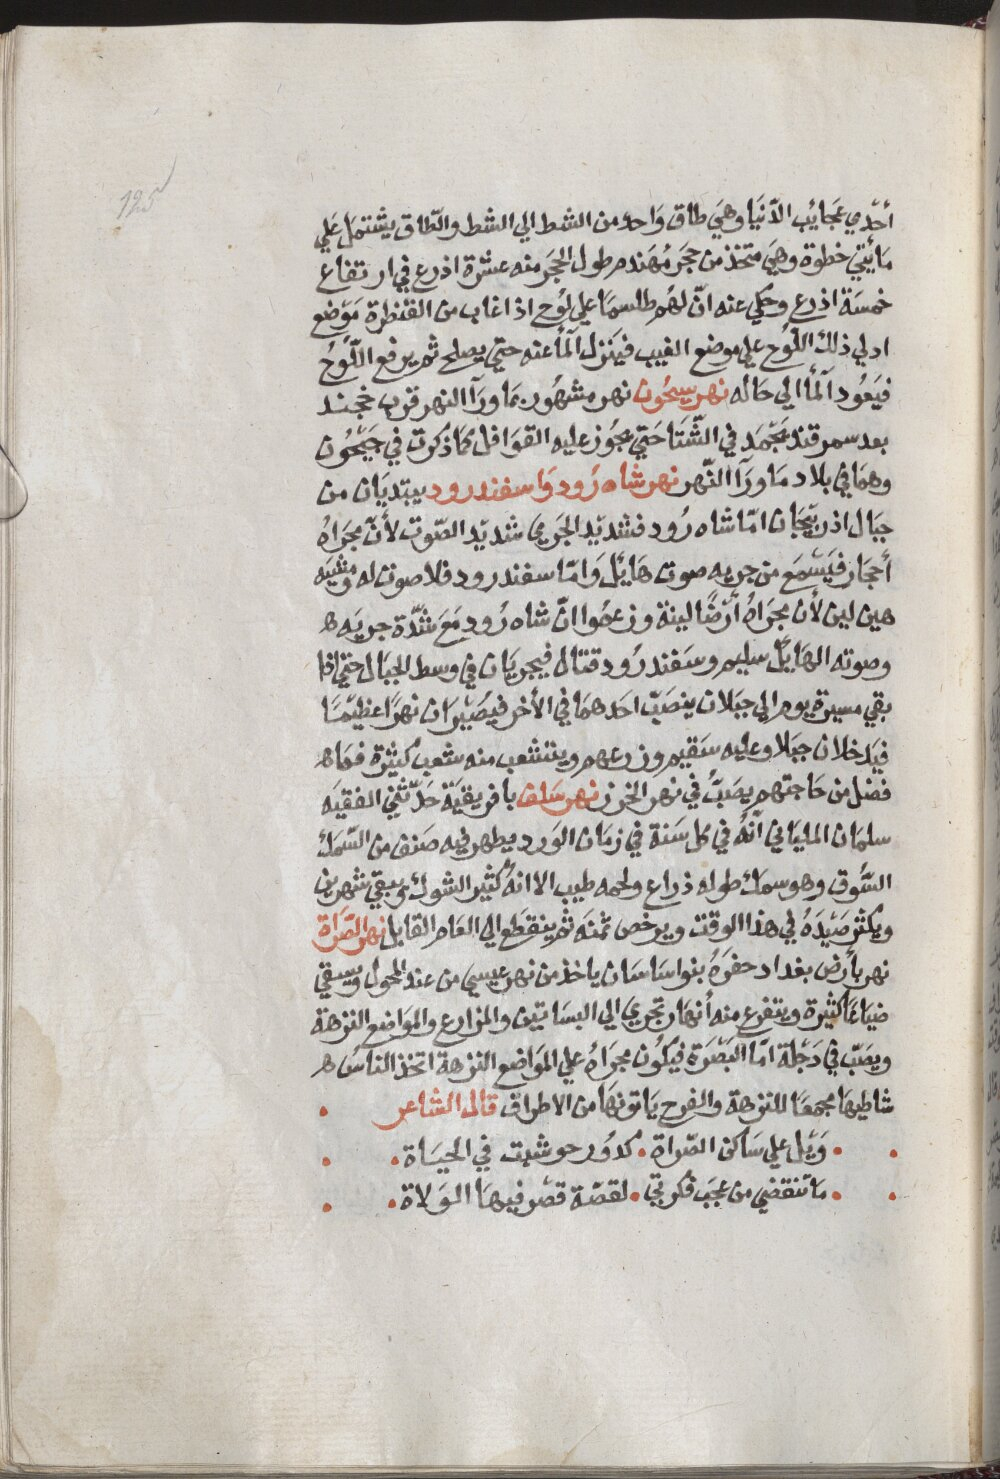 125
أحدي عجايب الدّنيا وهي طاق واحد من الشط الي الشط والطّاق يشتمل علي
مأيتي خطوة وهي متخذ من حجر مهندم طول الحجر منه عشرة اذرع في ارتفاع
خمسة اذرع وحكي عنه انّ لهم طلسما علي لوح اذا غاب من القنطرة موضع
ادلي ذلك اللّوح علي موضع الغيب فينزل المآ عنه حتي يصلح ثم يرفع اللّوح
فيعود المآ الي حاله نهر سيحون نهر مشهور بما ورآ النهر قرب خجند
بعد سمرقند يجمد في الشّتا حتي يجوز عليه القوافل كما ذكرت في جيحون
وهما في بلاد ما ورآ النّهر نهر شاه رود واسفندرود يبتديان من
جبال اذربيجان امّا شاه رود فشديد الجري شديد الصّوت لأنّ مجراه
أحجار فيسمع من جريه صوت هايل وامّا سفندرود فلا صوت له ومشيه
هين لين لأن مجراه أرضا لينة وزعموا انّ شاه رود مع شدّة جريه
وصوته الهايل سليم وسفندرود قتال فيجريان في وسط الجبال حتي اذا
بقي مسيرة يوم الي جيلان ينصبّ احدهما في الأخر فيصيران نهرا عظيما
فيدخلان جيلا وعليه سقيم وزرعهم ويتشعب منه شعب كثيرة فما
فضل من حاجتهم يصبّ في نهر الخزر نهر سلف بافريقية حدّثني الفقيه
سلمان الملياني أنّه في كل سنة في زمان الورد يطهر فيه صنف من السّمك
السّوق وهو سمك طوله ذراع ولحمه طيب الا انه كثير الشوك ويبقي شهرين
ويكثر صيده في هذا الوقت ويرخص ثمنه ثم ينقطع الي العام القابل نهر الصّراة
نهر بأرض بغداد حفره بنوا ساسان ياخذ من نهر عيسي من عند المحول ويسقي
ضياعا كثيرة ويتفرع منه أنهار تجري الي البساتين والمزارع والمواضع النزهة
ويصبّ في دجلة امّا البصرة فيكون مجراه علي المواضع النزهة اتخذ الناس
شاطيها مجمعا للنزهة والفرح ياتونها من الاطراف قال الشاعر
ويل علي ساكن الصّراة كدور حوشيت في الحياة
ما تنقضي من عجب فكرتي لقصّة قصر فيها الولاة